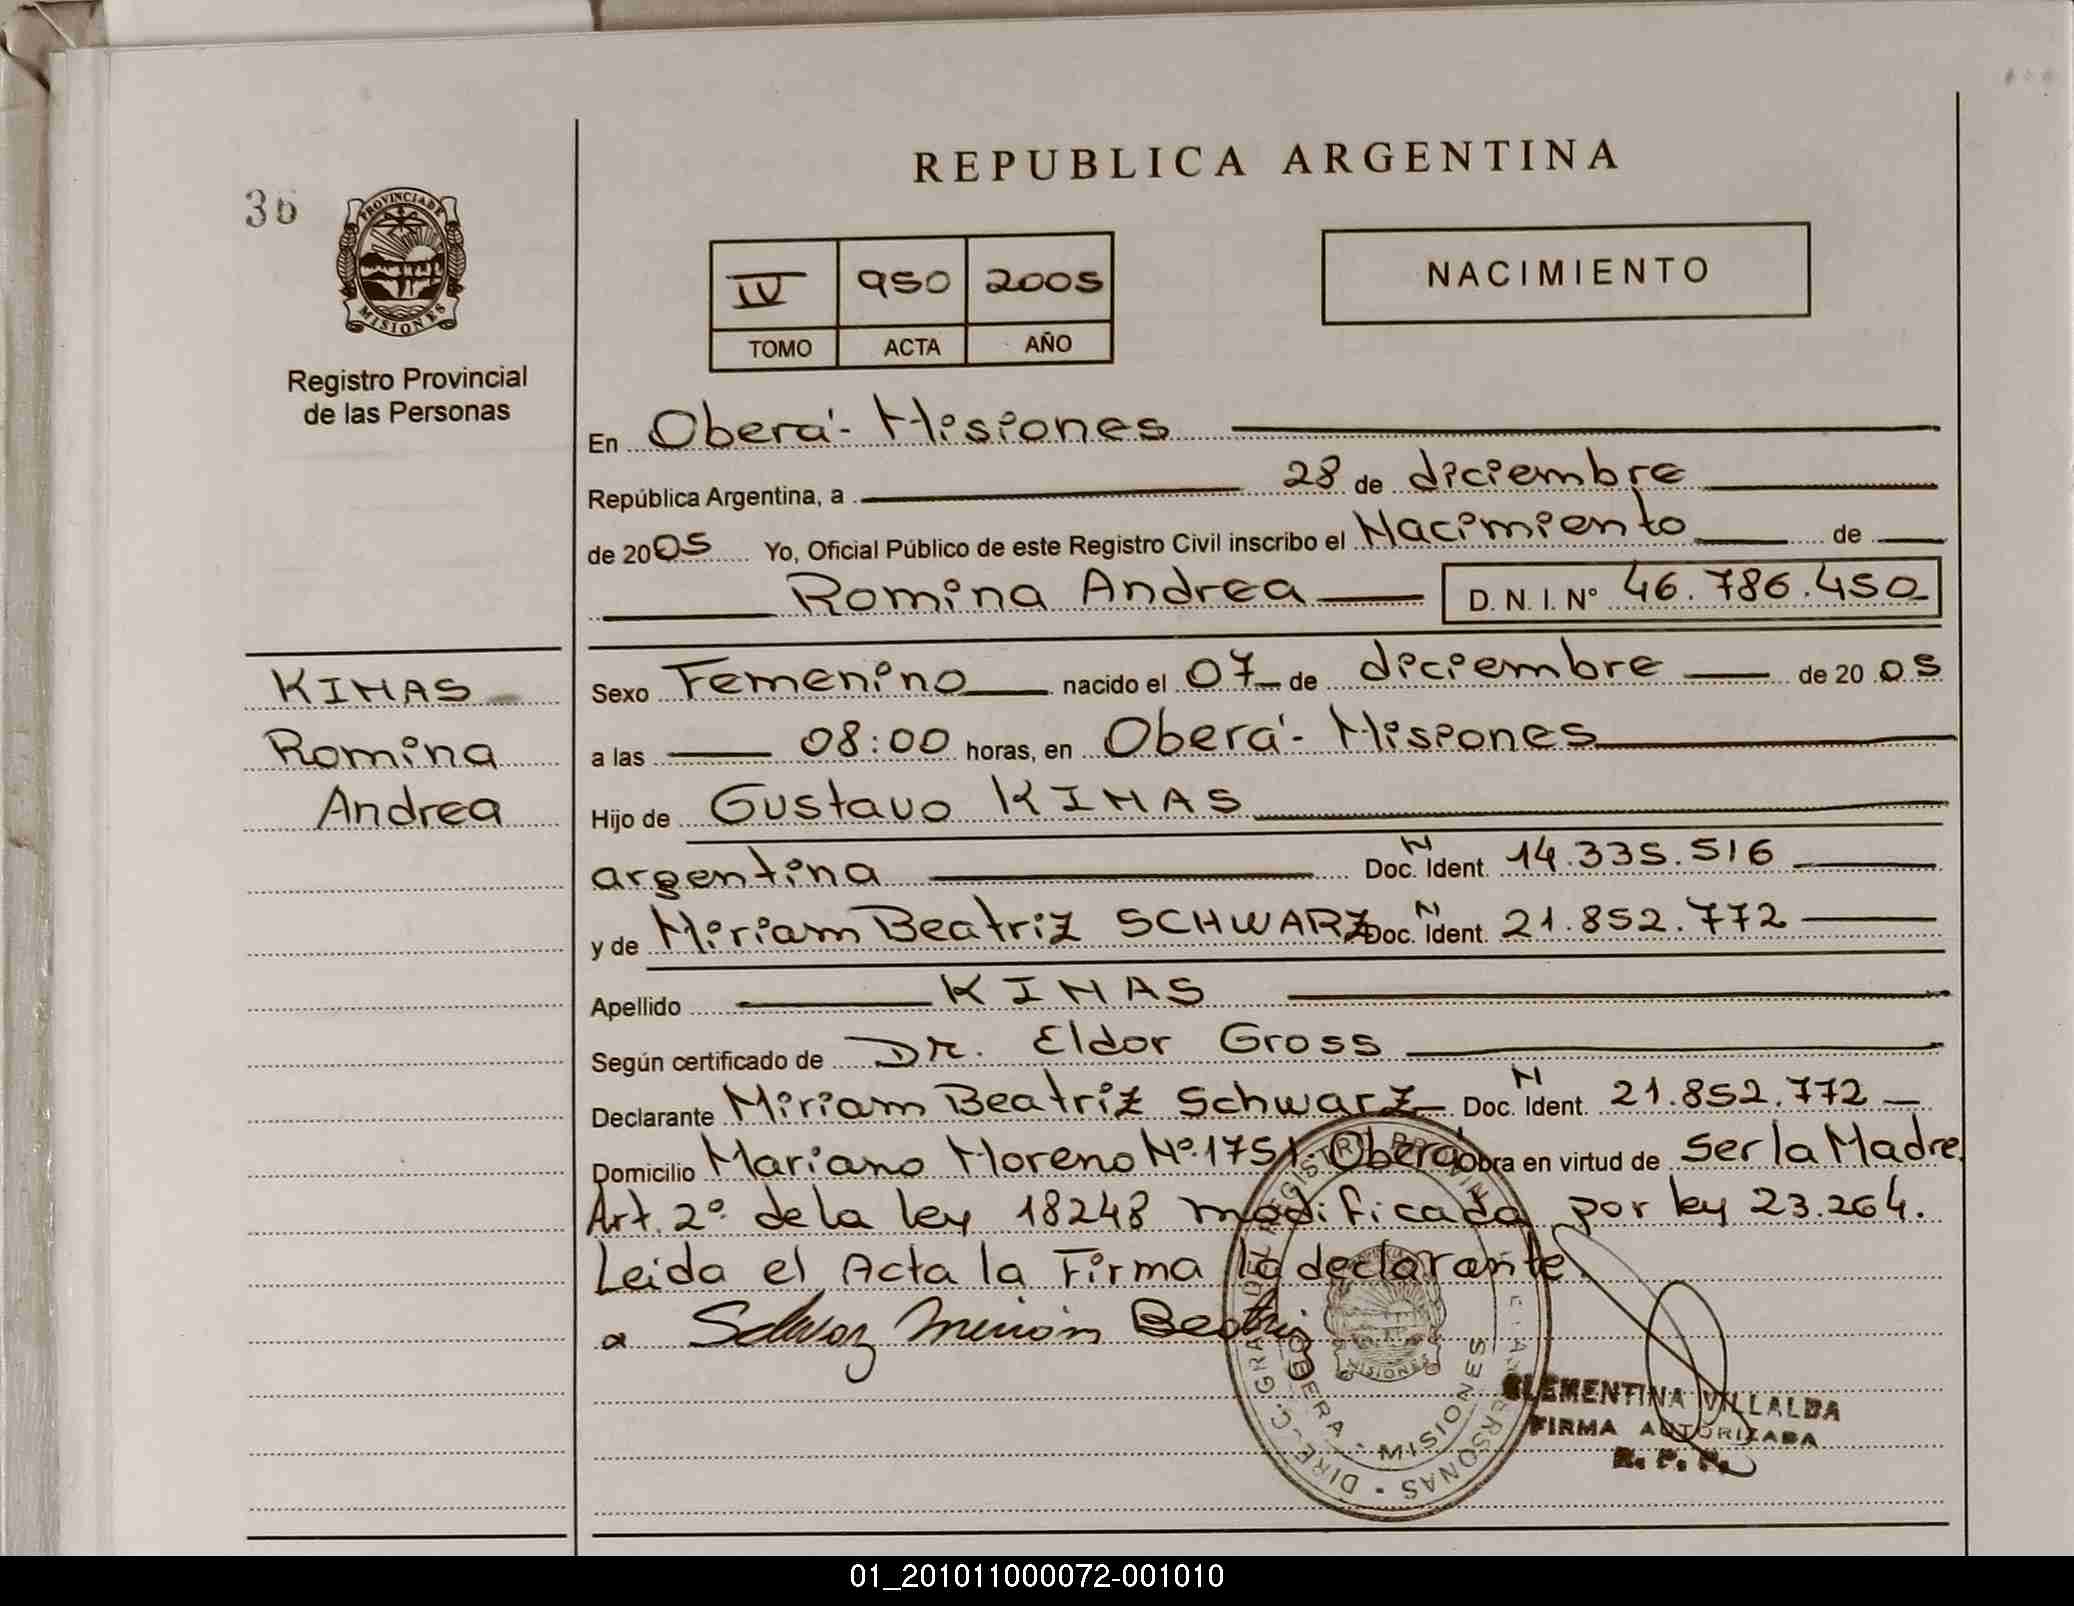 REPUBLICA ARGENTINA
36
PROVINCIA DE
MISIONES
Registro Provincial
de las Personas
IV 950 2005
TOMO ACTA AÑO
NACIMIENTO
En Oberá - Misiones
República Argentina, a 28 de diciembre
de 2005 Yo, Oficial Público de este Registro Civil inscribo el Nacimiento de
Romina Andrea D. N. I. N° 46.786.450
KIMAS
Romina
Andrea
Sexo Femenino nacido el 07 de diciembre de 2005
a las 08:00 horas, en Oberá - Misiones
Hijo de Gustavo KIMAS
argentina Doc. N Ident. 14.335.516
y de Miriam Beatriz SCHWARZ Doc. N Ident. 21.852.772
Apellido KIMAS
Según certificado de Dr. Eldor Gross
Declarante Miriam Beatriz Schwarz Doc. N Ident. 21.852.772
Domicilio Mariano Moreno Nº 1751. Oberá Obra en virtud de Ser la Madre.
Art. 2º de la ley 18248 modificada por ley 23.264.
Leida el Acta la Firma la declarante.
Schwarz Miriam Beatriz
OBERA - MISIONES
CLEMENTINA VILLALBA
FIRMA AUTORIZADA
R. P. P.
01_201011000072-001010